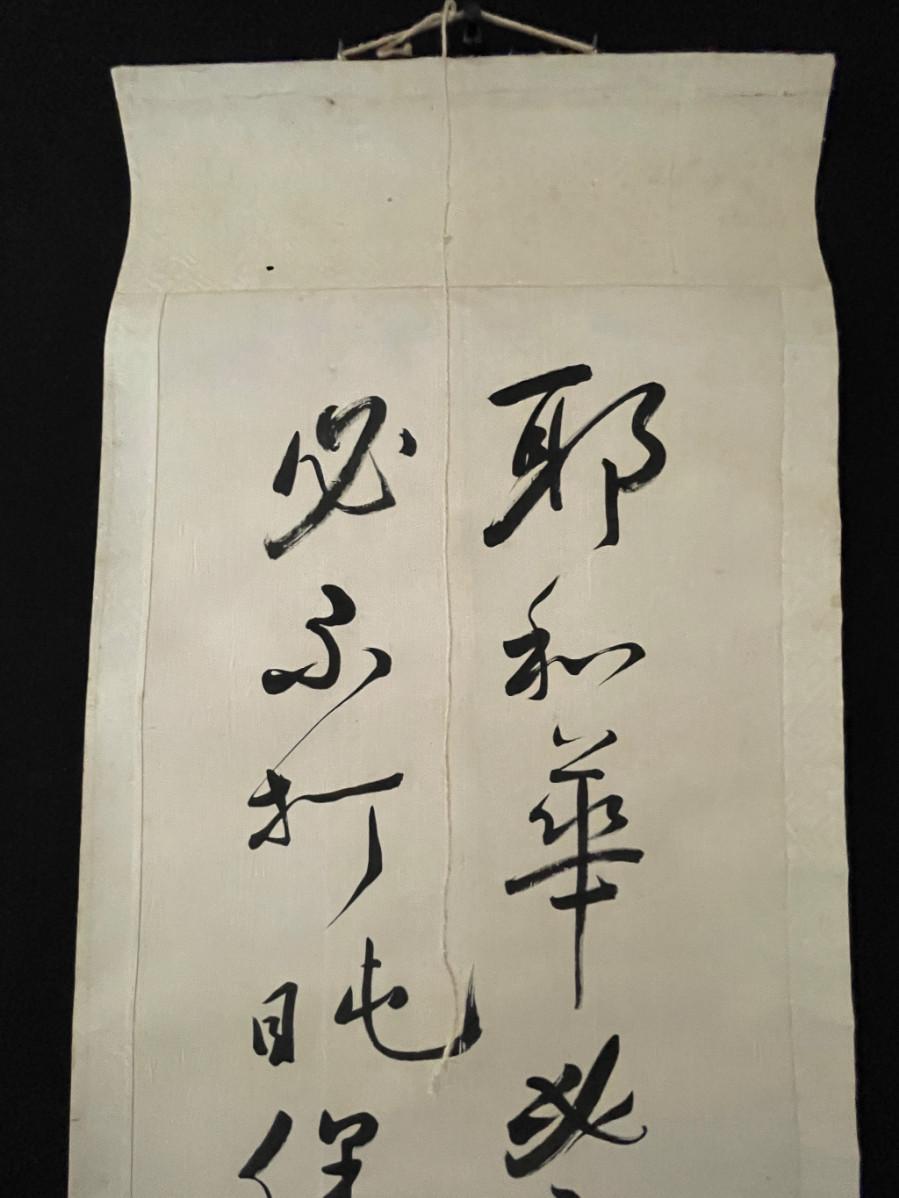 耶和華必
必不打盹保